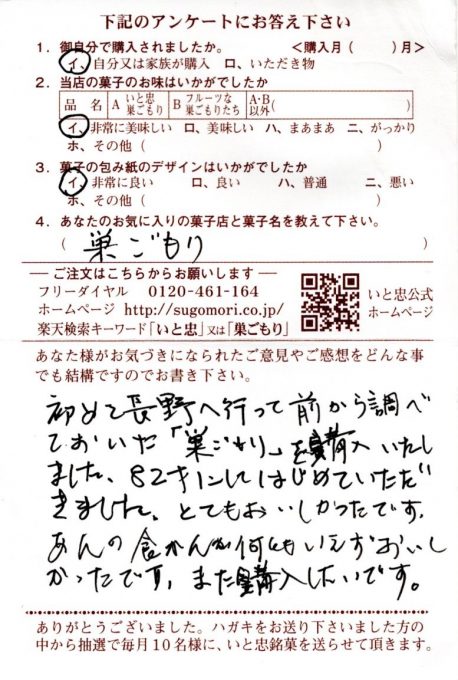 下記のアンケートにお答え下さい
1. 御自分で購入されましたか。 <購入月( )月>
イ、自分又は家族が購入 ロ、いただき物
2. 当店の菓子のお味はいかがでしたか
品 名 A いと忠巣ごもり B フルーツな巣ごもりたち A・B以外( )
イ、非常に美味しい ロ、美味しい ハ、まあまあ ニ、がっかり
ホ、その他( )
3. 菓子の包み紙のデザインはいかがでしたか
イ、非常に良い ロ、良い ハ、普通 ニ、悪い
ホ、その他( )
4. あなたのお気に入りの菓子店と菓子名を教えて下さい。
( 巣ごもり )
― ご注文はこちらからお願いします ―
フリーダイヤル 0120-461-164
ホームページ http://sugomori.co.jp/
楽天検索キーワード「いと忠」又は「巣ごもり」
いと忠公式
ホームページ
あなた様がお気づきになられたご意見やご感想をどんな事
でも結構ですのでお書き下さい。
初めて長野へ行って前から調べ
ておいた「巣ごもり」を購入いたし
ました、82才にしてはじめていただ
きました、とてもおいしかったです、
あんの食かんが何ともいえずおいし
かったです、また購入したいです。
ありがとうございました。ハガキをお送り下さいました方の
中から抽選で毎月10名様に、いと忠銘菓を送らせて頂きます。